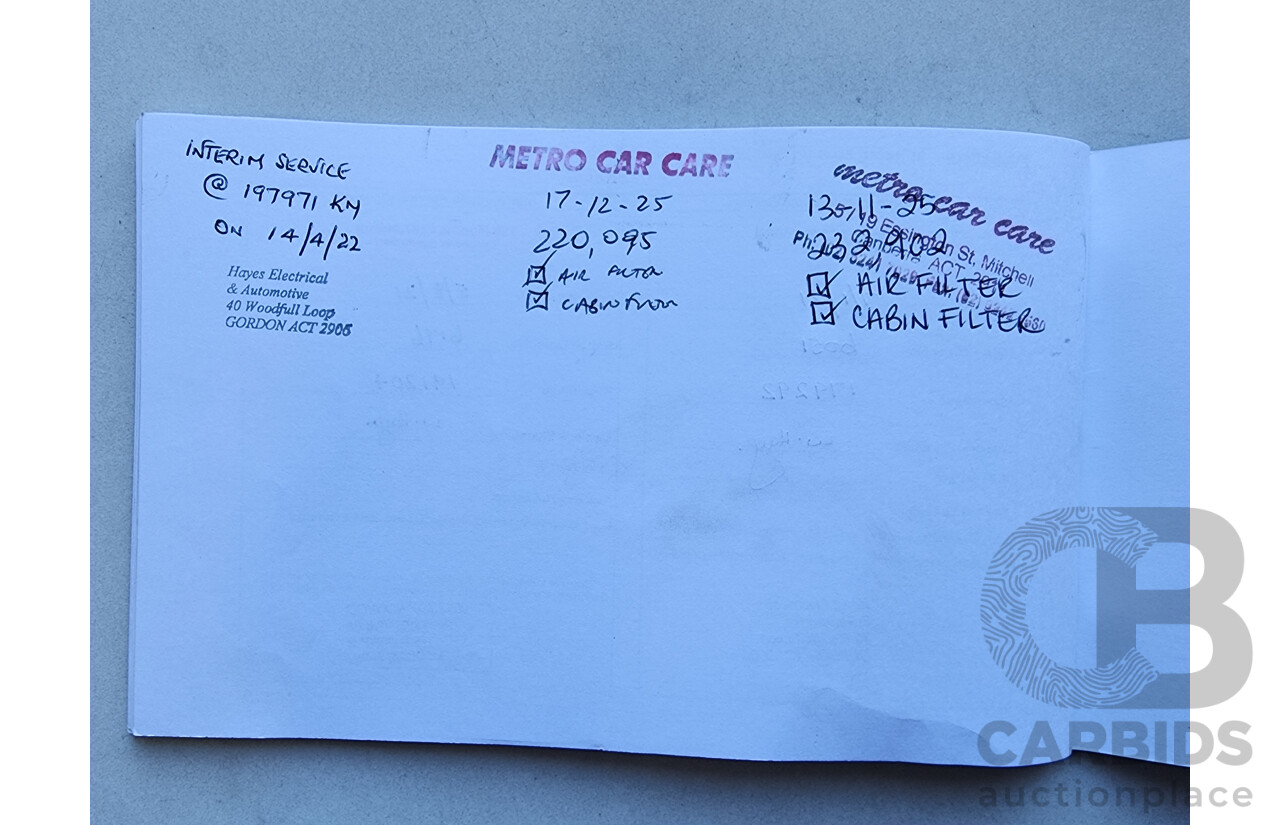 INTERIM SERVICE
@ 197971 KM
ON 14/4/22
Hayes Electrical
& Automotive
40 Woodfull Loop
GORDON ACT 2906
METRO CAR CARE
17-12-25
220,095
AIR FILTER
CABIN FILTER
metro car care
13-11-25
5/19 Essington St. Mitchell
232 902
Canberra ACT
AIR FILTER
CABIN FILTER
CARBIDS
auctionplace